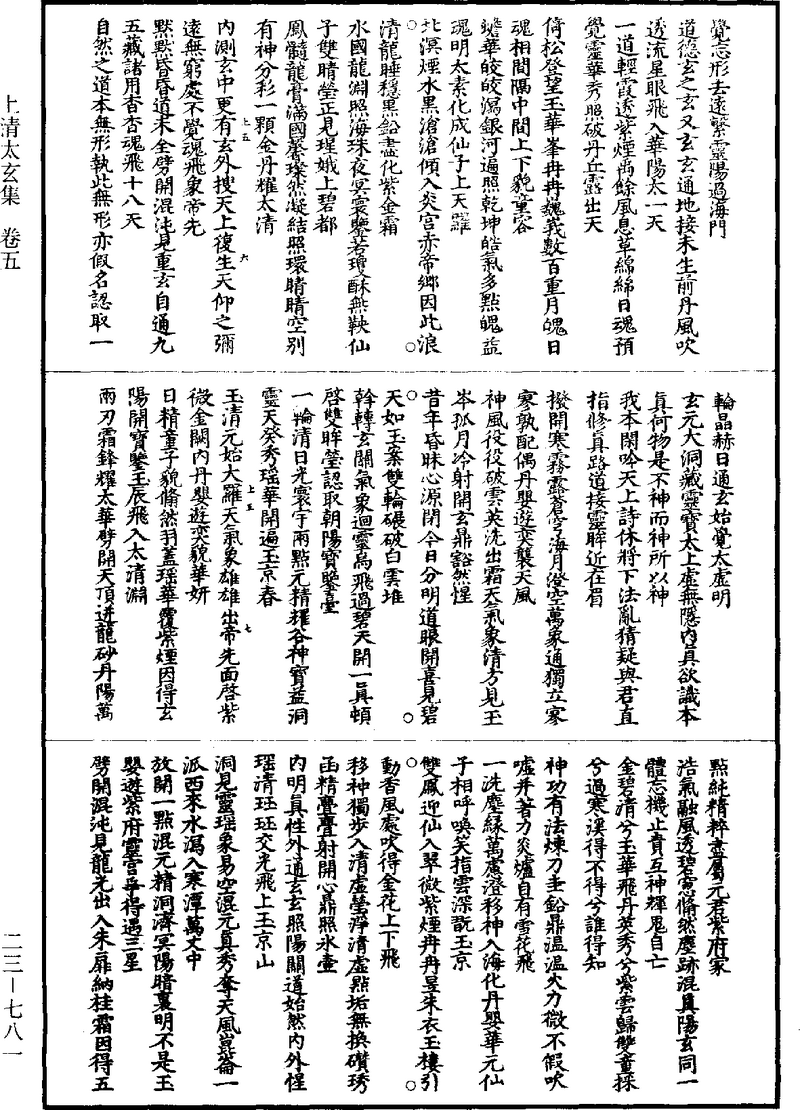 覺忘形去遠繫靈陽過海門
道德玄之玄又玄玄通地接未生前丹風吹
透流星眼飛入華陽太一天
一道輕霞透紫煙禹餘風息草綿綿日魂預
覺靈華秀照破丹丘露出天
倚松登望玉華峯冉冉巍我數百重月魄日
魂相間隔中間上下貌童容
蟾華皎皎瀉銀河遍照乾坤皓氣多點魄益
魂明太素化成仙子上天羅
北溟煙水黑滄滄傾入炎宮赤帝鄉因此浪
清龍睡穩黑鉛盡化紫金霜
水國龍淵照海珠夜冥寰鑒若瓊酥無鞅仙
子雙睛瑩正見瑆娥上碧都
鳳髓龍膏滿國馨璨然凝結照環晴晴空別
有神分彩一顆金丹耀太清
內測玄中更有玄外搜天上復生天仰之彌
遠無窮處不覺魂飛象帝先
默默昏昏道未全劈開混沌見重玄自通九
五藏諸用杳杳魂飛十八天
自然之道本無形執此無形亦假名認取一
輪晶赫日通玄始覺太虛明
玄元大洞藏靈寶太上虛無隱內真欲識本
真何物是不神而神所以神
我本閑吟天上詩休將下法亂猜疑與君直
指修真路道接靈眸近在眉
撥開寒霧露蒼穹海月澄空萬象通獨立寒
寥孰配偶丹嬰遊奕襲天風
神風役役破雲英洗出霜天氣象清方見玉
岑孤月冷射開玄鼎豁然惺
昔年昏昧心源閉今日分明道眼開喜見碧
天如玉案雙輪碾破白雲堆
斡轉玄關氣象迴靈烏飛過碧天開一真頓
啓雙眸瑩認取朝陽寶鑒臺
一輪清日光寰宇兩點元精耀谷神寶益洞
靈天癸秀瑶華開遍玉京春
玉清元始大羅天氣象雄雄出帝先面啓紫
微金闕內丹嬰遊奕貌華妍
日精童子貌翛然羽蓋瑶華覆紫煙因得玄
陽開寶鑒玉辰飛入太清淵
兩刃霜鋒耀太華劈開天頂迸龍砂丹陽萬
點純精粹盡屬元君紫府家
浩氣融風透碧窓翛然塵跡混真陽玄同一
體忘機止貫互神輝鬼自亡
金碧清兮玉華飛丹英秀兮紫雲歸雙童採
兮過寒溪得不得兮誰得知
神功有法煉刀圭鉛鼎溫溫火力微不假吹
噓并著力炎爐自有雪花飛
一洗塵緣萬慮澄移神入海化丹嬰華元仙
子相呼喚笑指雲深翫玉京
雙鳳迎仙入翠微紫煙冉冉曳朱衣玉樓引
動香風處吹得金花上下飛
移神獨步入清虛瑩淨清虛點垢無換鑽琇
函精疊疊射開心鼎照氷壷
內明真性外通玄玄照陽關道始然內外惺
瑶清珏珏交光飛上玉京山
洞見靈瑶象易空混元真秀奪天風崑崙一
派西來水瀉入寒潭萬丈中
放開一點混元精洞濟冥陽暗裏明不是玉
嬰遊紫府靈宮爭得遇三星
劈開混沌見龍光出入朱扉納桂霜因得五
上清太玄集　卷五
二三－七八一
上五
六
上五
七